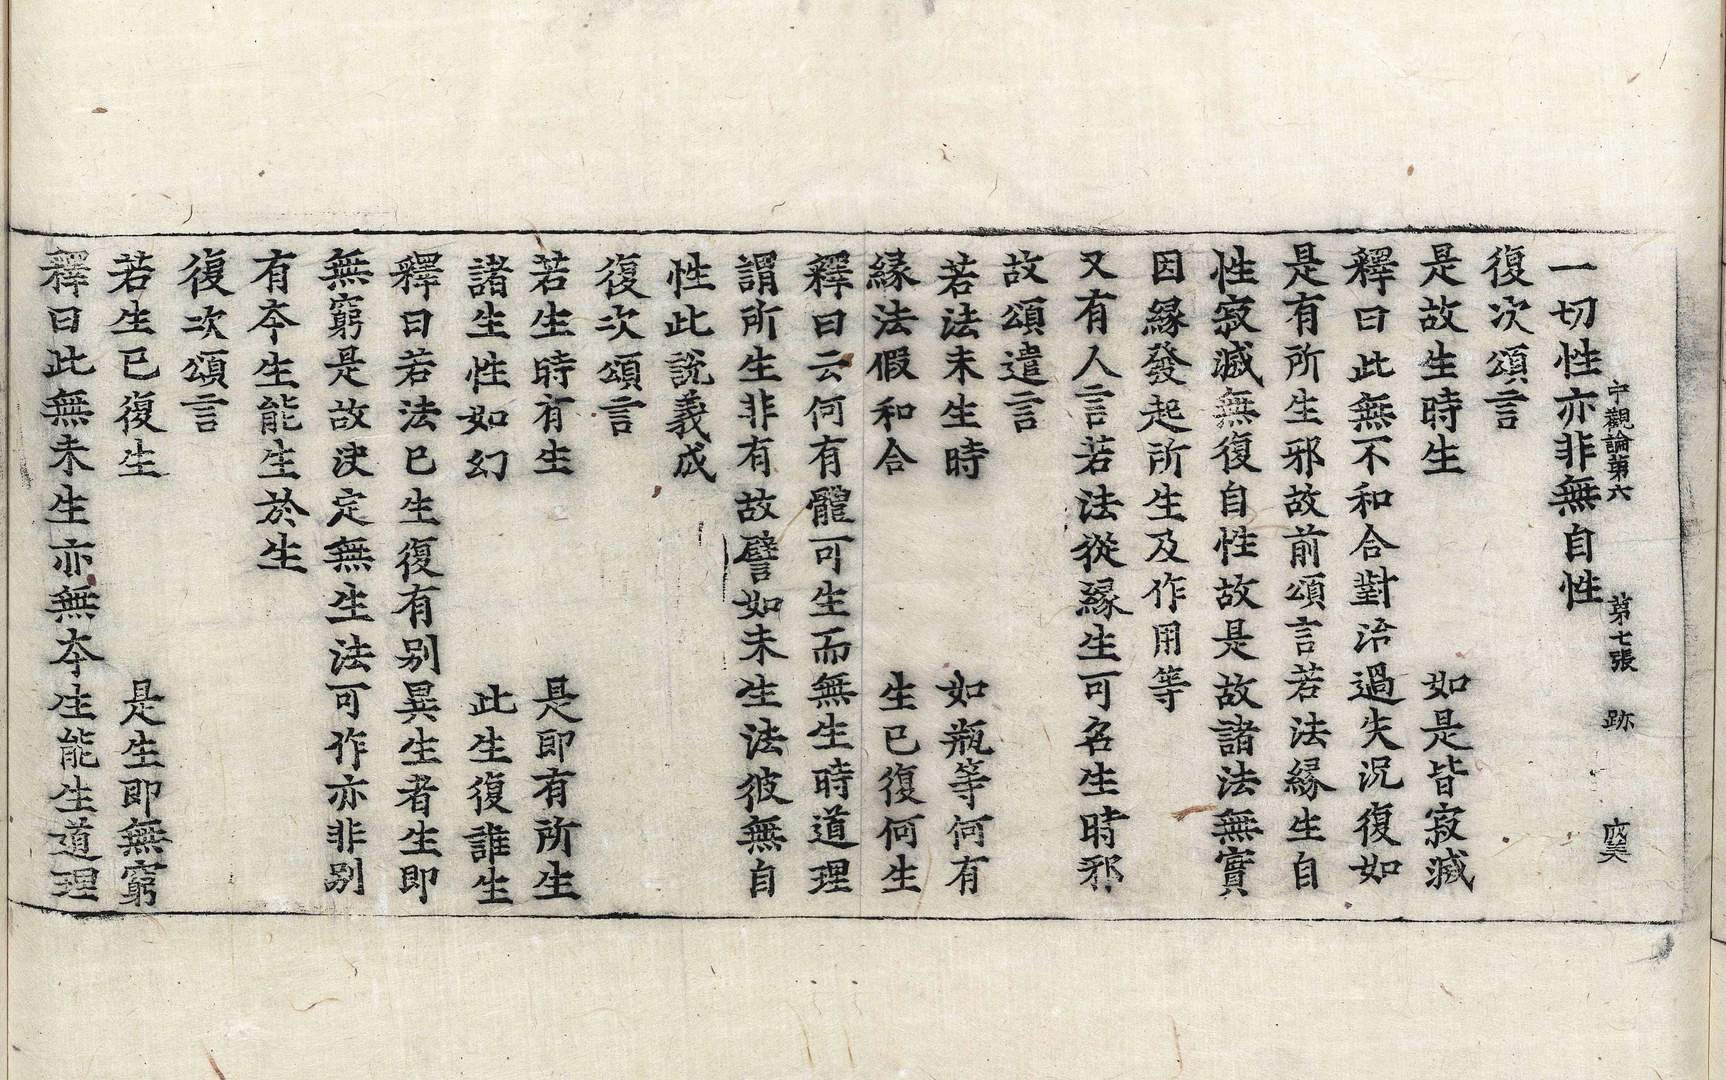 一切性亦非無自性
中觀論第六 第七張 跡
復次頌言
是故生時生 如是皆寂滅
釋曰此無不和合對治過失況復如
是有所生邪故前頌言若法緣生自
性寂滅無復自性故是故諸法無實
因緣發起所生及作用等
又有人言若法從緣生可名生時邪
故頌遣言
若法未生時 如瓶等何有
緣法假和合 生已復何生
釋曰云何有體可生而無生時道理
謂所生非有故譬如未生法彼無自
性此說義成
復次頌言
若生時有生 是即有所生
諸生性如幻 此生復誰生
釋曰若法已生復有別異生者生即
無窮是故決定無生法可作亦非別
有夲生能生於生
復次頌言
若生已復生 是生即無窮
釋曰此無未生亦無夲生能生道理